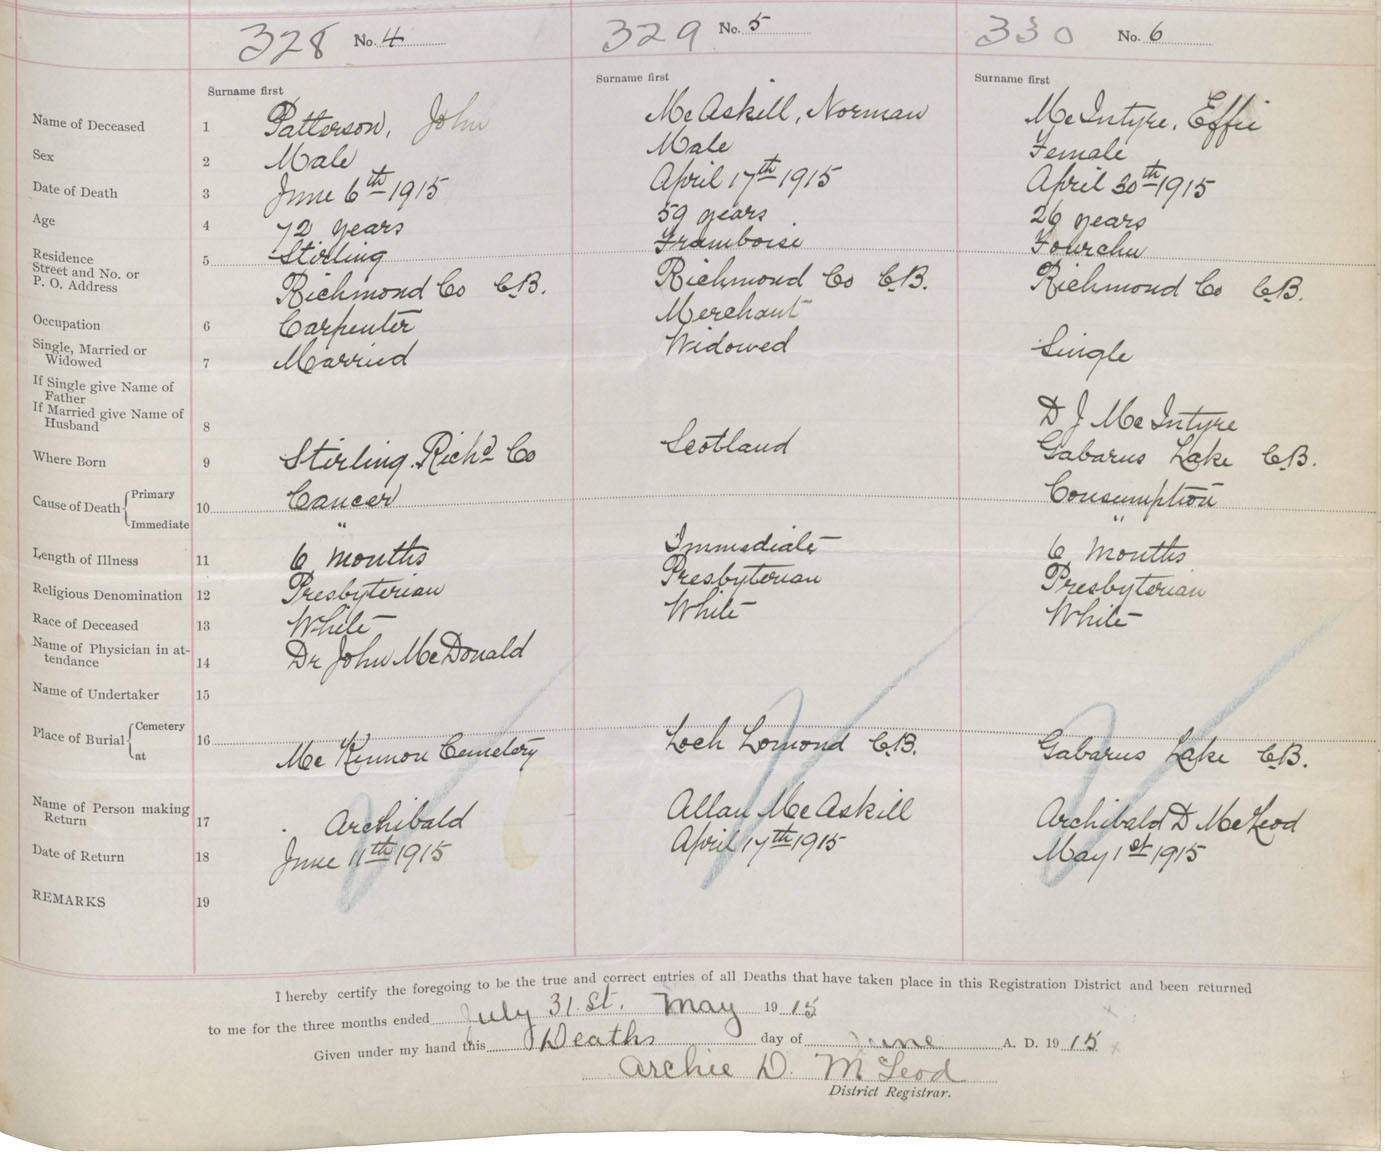 328 No. 4 329 No. 5 330 No. 6
Surname first Surname first Surname first
Name of Deceased 1 Patterson, John McAskill, Norman McIntyre, Effie
Sex 2 Male Male Female
Date of Death 3 June 6th 1915 April 17th 1915 April 30th 1915
Age 4 72 years 59 years 26 years
Residence 5 Stirling Framboise Fourchu
Street and No. or
P. O. Address Richmond Co C.B. Richmond Co C.B. Richmond Co C.B.
Occupation 6 Carpenter Merchant
Single, Married or
Widowed 7 Married Widowed Single
If Single give Name of
Father
If Married give Name of
Husband 8 D J McIntyre
Where Born 9 Stirling. Richd Co Scotland Gabarus Lake C.B.
Cause of Death { Primary 10 Cancer Consumption
Immediate " "
Length of Illness 11 6 months Immediate 6 months
Religious Denomination 12 Presbyterian Presbyterian Presbyterian
Race of Deceased 13 White White White
Name of Physician in at-
tendance 14 Dr John McDonald
Name of Undertaker 15
Place of Burial { Cemetery 16
at McKinnon Cemetery Loch Lomond C.B. Gabarus Lake C.B.
Name of Person making
Return 17 Archibald Allan McAskill Archibald D McLeod
Date of Return 18 June 11th 1915 April 17th 1915 May 1st 1915
REMARKS 19
I hereby certify the foregoing to be the true and correct entries of all Deaths that have taken place in this Registration District and been returned
to me for the three months ended July 31.st. May 19 15
Given under my hand this Deaths day of June A. D. 19 15
Archie D. McLeod
District Registrar.